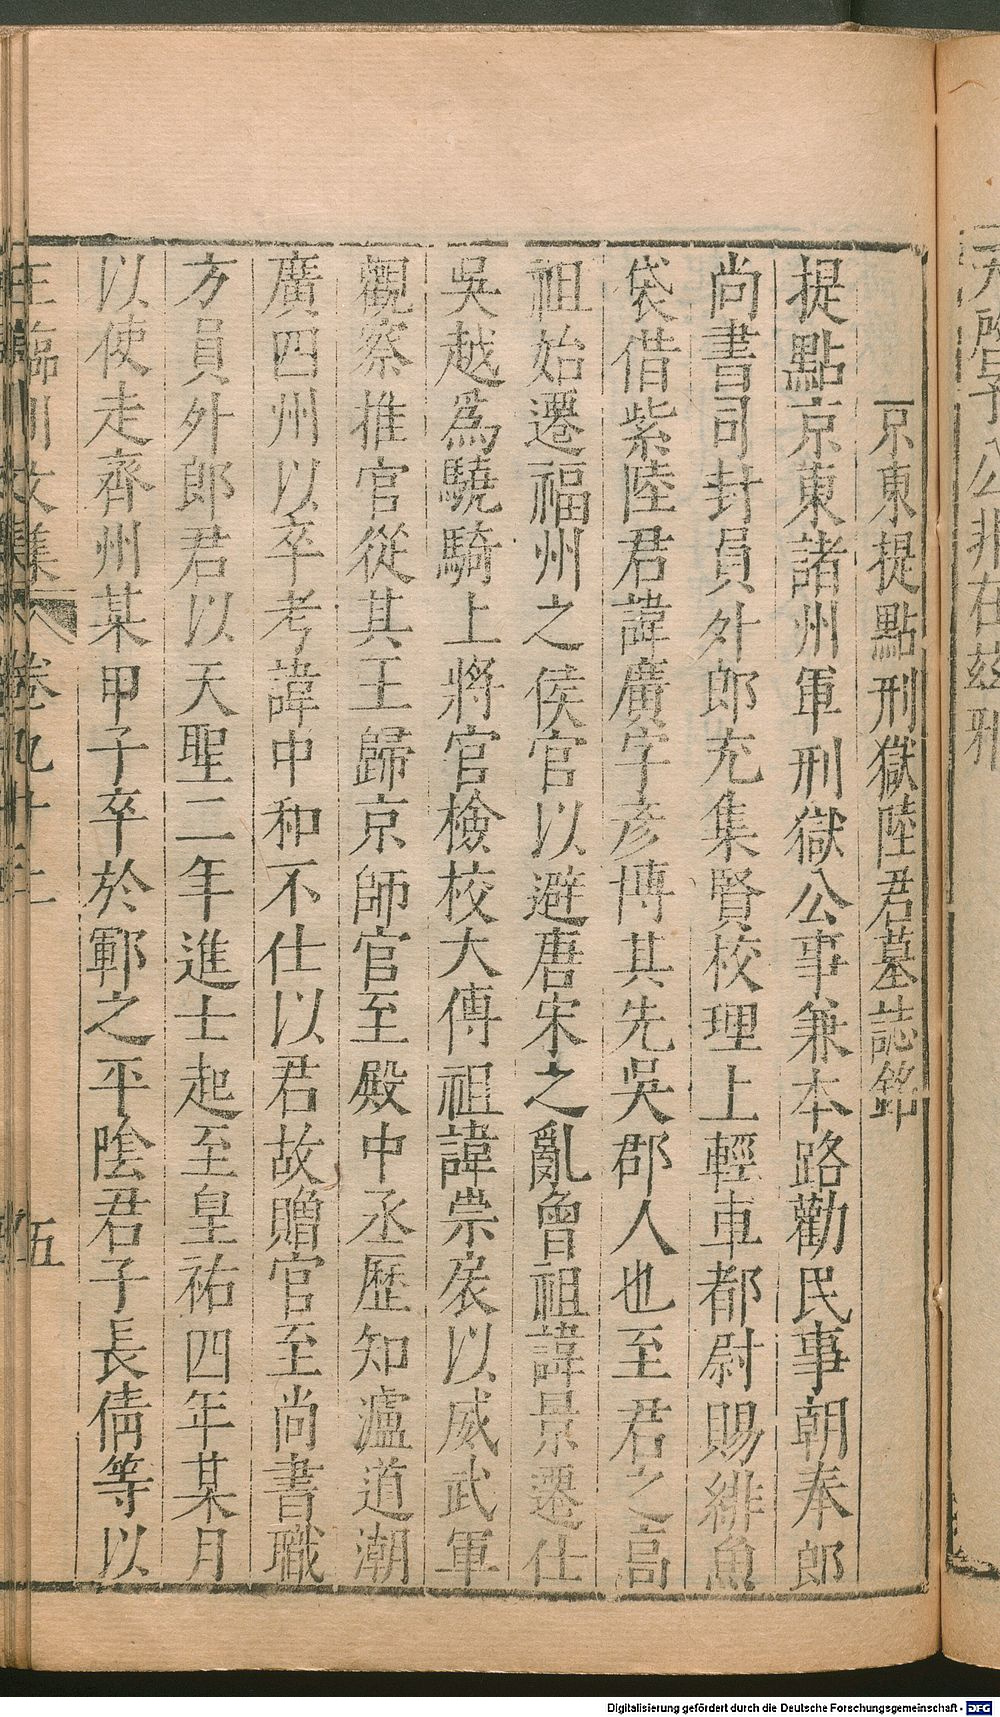 京東提點刑獄陸君墓誌銘
提點京東諸州軍刑獄公事兼本路勸民事朝奉郎
尚書司封員外郎充集賢校理上輕車都尉賜緋魚
袋借紫陸君諱廣字彥博其先吳郡人也至君之高
祖始遷福州之侯官以避唐宋之亂曾祖諱景遷仕
吳越爲驍騎上將官檢校大傅祖諱崇扆以威武軍
觀察推官從其王歸京師官至殿中丞歷知瀘道潮
廣四州以卒考諱中和不仕以君故贈官至尚書職
方員外郎君以天聖二年進士起至皇祐四年某月
以使走齊州某甲子卒於鄆之平陰君子長倩等以
王臨川文集 卷九十二 五
Digitalisierung gefördert durch die Deutsche Forschungsgemeinschaft - DFG